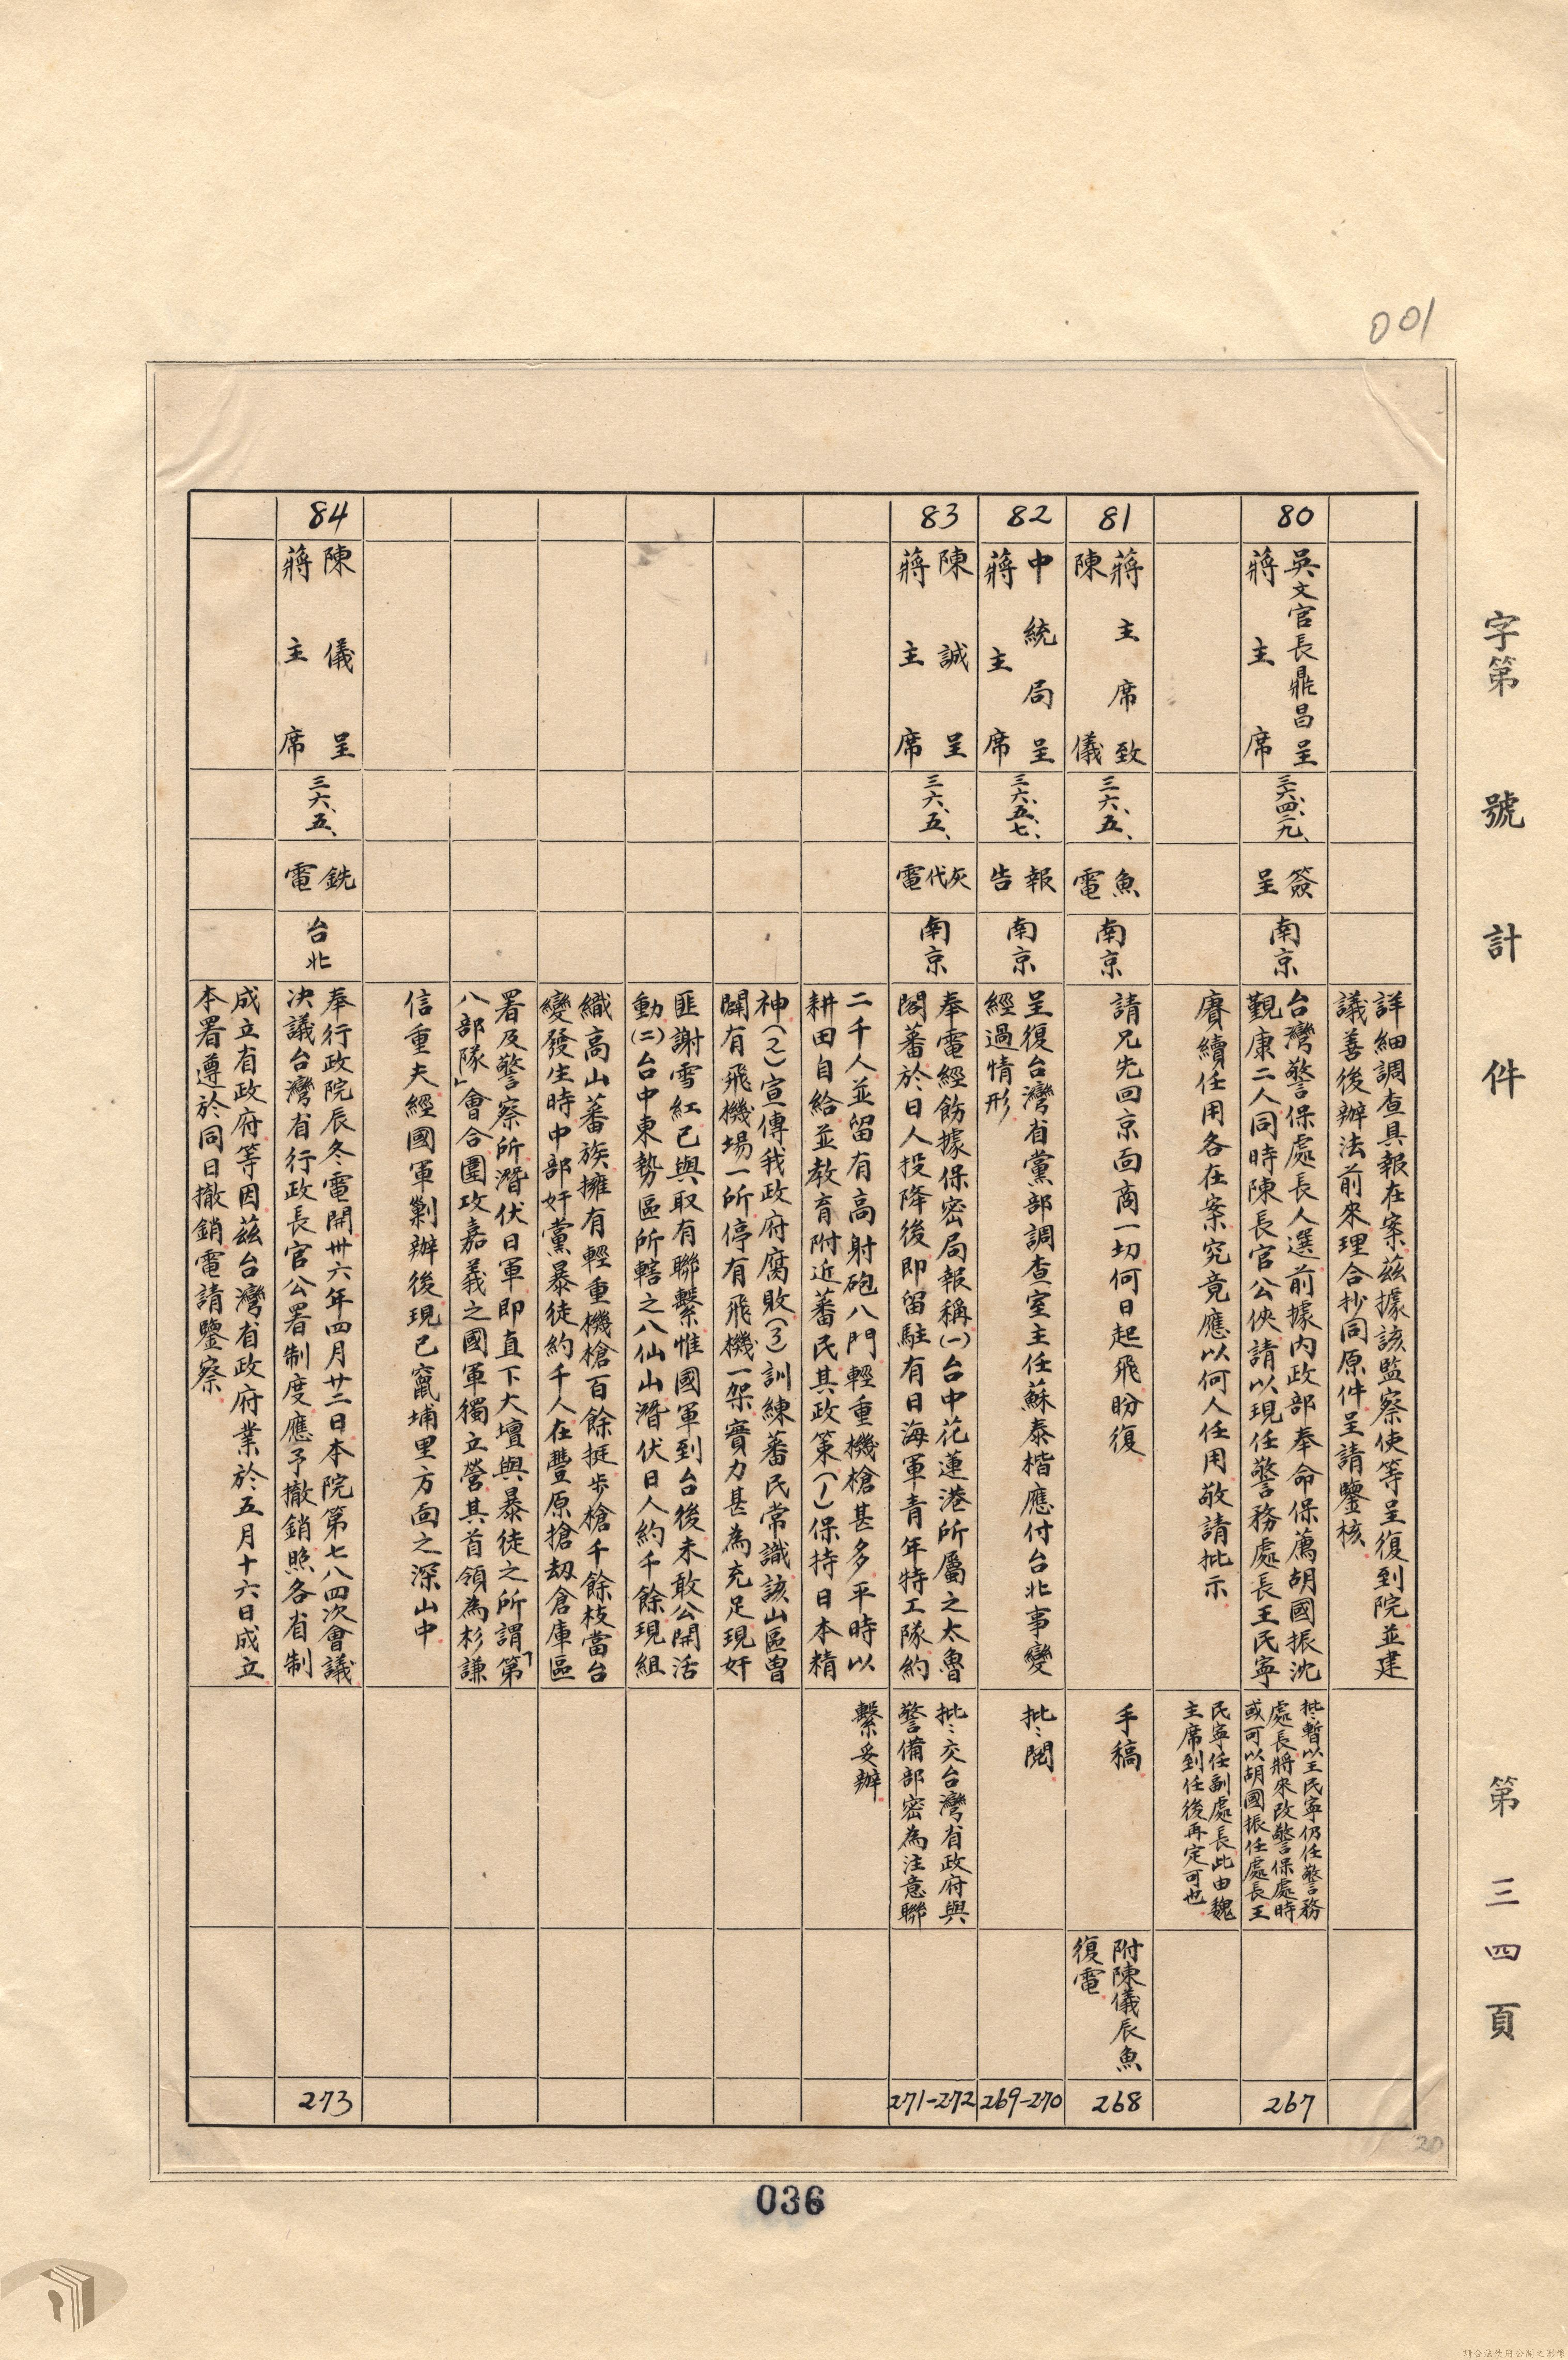 001
字第　號計　件　第三四頁
詳細調查具報在案茲據該監察使等呈復到院並建
議善後辦法前來理合抄同原件呈請鑒核
80
吳文官長鼎昌呈
蔣主席
三六、四、二九、
簽呈
南京
台灣警保處長人選前據內政部奉命保薦胡國振沈
覲康二人同時陳長官公俠請以現任警務處長王民寧
賡續任用各在案究竟應以何人任用敬請批示
批：暫以王民寧仍任警務
處長將來改警保處時
或可以胡國振任處長王
民寧任副處長此由魏
主席到任後再定可也
267
81
蔣主席致
陳儀
三六、五、
魚電
南京
請兄先回京面商一切何日起飛盼復
手稿
附陳儀辰魚
復電
268
82
中統局呈
蔣主席
三六、五、七、
報告
南京
呈復台灣省黨部調查室主任蘇泰楷應付台北事變
經過情形
批：閱
269-270
83
陳誠呈
蔣主席
三六、五、
灰代電
南京
奉電經飭據保密局報稱(一)台中花蓮港所屬之太魯
閣蕃於日人投降後即留駐有日海軍青年特工隊約
二千人並留有高射砲八門輕重機槍甚多平時以
耕田自給並教育附近蕃民其政策(1)保持日本精
神(2)宣傳我政府腐敗(3)訓練蕃民常識該山區曾
闢有飛機場一所停有飛機一架實力甚為充足現奸
匪謝雪紅已與取有聯繫惟國軍到台後未敢公開活
動(二)台中東勢區所轄之八仙山潛伏日人約千餘現組
織高山蕃族擁有輕重機槍百餘挺步槍千餘枝當台
變發生時中部奸黨暴徒約千人在豐原搶劫倉庫區
署及警察所潛伏日軍即直下大壇與暴徒之所謂「第
八部隊」會合圍攻嘉義之國軍獨立營其首領為杉謙
信重夫經國軍剿辦後現已竄埔里方面之深山中
批：交台灣省政府與
警備部密為注意聯
繫妥辦
271-272
84
陳儀呈
蔣主席
三六、五、
銑電
台北
奉行政院辰冬電開卅六年四月廿二日本院第七八四次會議
決議台灣省行政長官公署制度應予撤銷照各省制
成立省政府等因茲台灣省政府業於五月十六日成立
本署遵於同日撤銷電請鑒察
273
20
036
請合法使用公開之影像